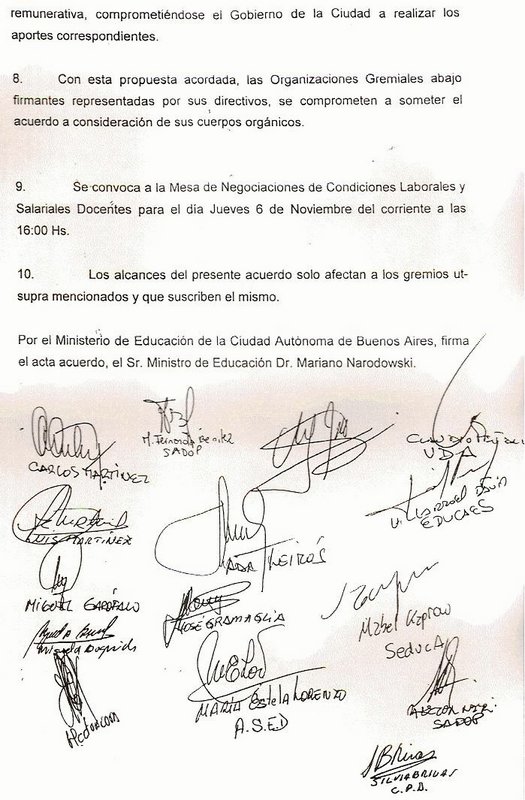 remunerativa, comprometiéndose el Gobierno de la Ciudad a realizar los
aportes correspondientes.
8. Con esta propuesta acordada, las Organizaciones Gremiales abajo
firmantes representadas por sus directivos, se comprometen a someter el
acuerdo a consideración de sus cuerpos orgánicos.
9. Se convoca a la Mesa de Negociaciones de Condiciones Laborales y
Salariales Docentes para el día Jueves 6 de Noviembre del corriente a las
16:00 Hs.
10. Los alcances del presente acuerdo solo afectan a los gremios ut-
supra mencionados y que suscriben el mismo.
Por el Ministerio de Educación de la Ciudad Autónoma de Buenos Aires, firma
el acta acuerdo, el Sr. Ministro de Educación Dr. Mariano Narodowski.
CARLOS MARTINEZ
M. Fernanda Benitez
SADOP
CLAUDIO
UDA
LUIS MARTINEZ
EDUCAES
MIGUEL GAROFALO
JOSÉ GRAMAGLIA
Mabel
SeducA
MARÍA Estela LORENZO
A.S.E.D
SADOP
SILVIA BRIVAS
C.P.D.